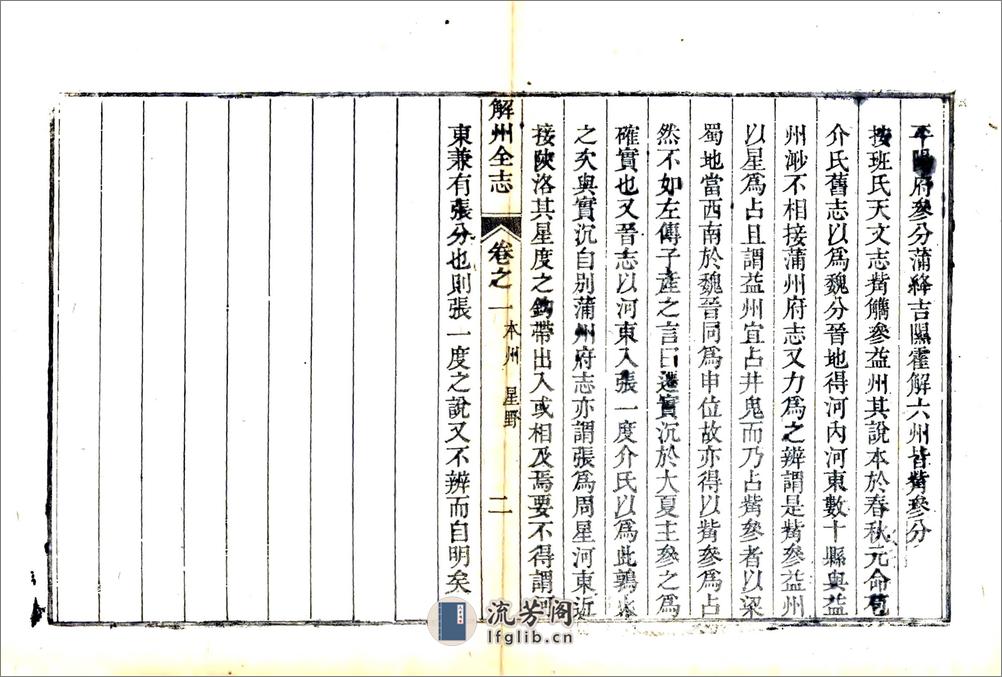 平陽府參分蒲絳吉隰霍解六州皆觜參分
按班氏天文志觜觿參益州其說本於春秋元命苞
介氏舊志以爲魏分晉地得河內河東數十縣與益
州渺不相接蒲州府志又力爲之辨謂是觜參益州
以星爲占且謂益州宜占井鬼而乃占觜參者以梁
蜀地當西南於魏晉同爲申位故亦得以觜參爲占
然不如左傳子產之言曰遷實沉於大夏主參之爲
確實也又晉志以河東入張一度介氏以爲此鶉火
之次與實沉自別蒲州府志亦謂張爲周星河東近
接陝洛其星度之鈎帶出入或相及焉要不得謂河
東兼有張分也則張一度之說又不辨而自明矣
解州全志
卷之一
本州 星野
二
流芳阁
lfglib.cn